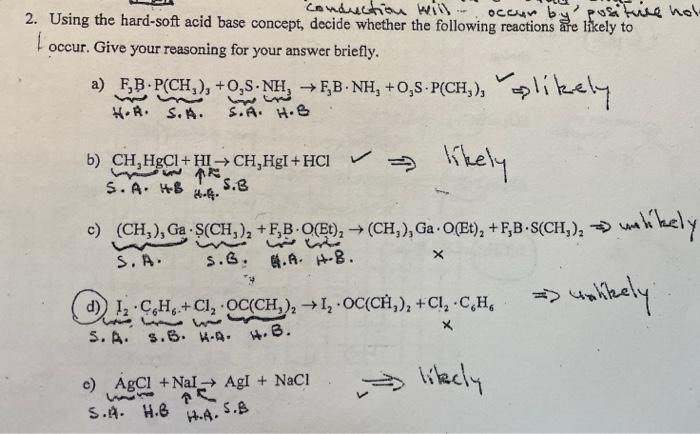 conduction will - occur by positive hol
2. Using the hard-soft acid base concept, decide whether the following reactions are likely to
occur. Give your reasoning for your answer briefly.
a) F₃B·P(CH₃)₃ + O₃S·NH₃ → F₃B·NH₃ + O₃S·P(CH₃)₃ ✓ ⇒ likely
H.A. S.A. S.A. H.B
b) CH₃HgCl + HI → CH₃HgI + HCl ✓ ⇒ likely
S.A. H.B H.A. S.B
c) (CH₃)₃Ga·S(CH₃)₂ + F₃B·O(Et)₂ → (CH₃)₃Ga·O(Et)₂ + F₃B·S(CH₃)₂ ⇒ unlikely
S.A. S.B. H.A. H.B. ×
d) I₂·C₆H₆ + Cl₂·OC(CH₃)₂ → I₂·OC(CH₃)₂ + Cl₂·C₆H₆ ⇒ unlikely
S.A. S.B. H.A. H.B. ×
e) AgCl + NaI → AgI + NaCl ⇒ likely
S.A. H.B H.A. S.B